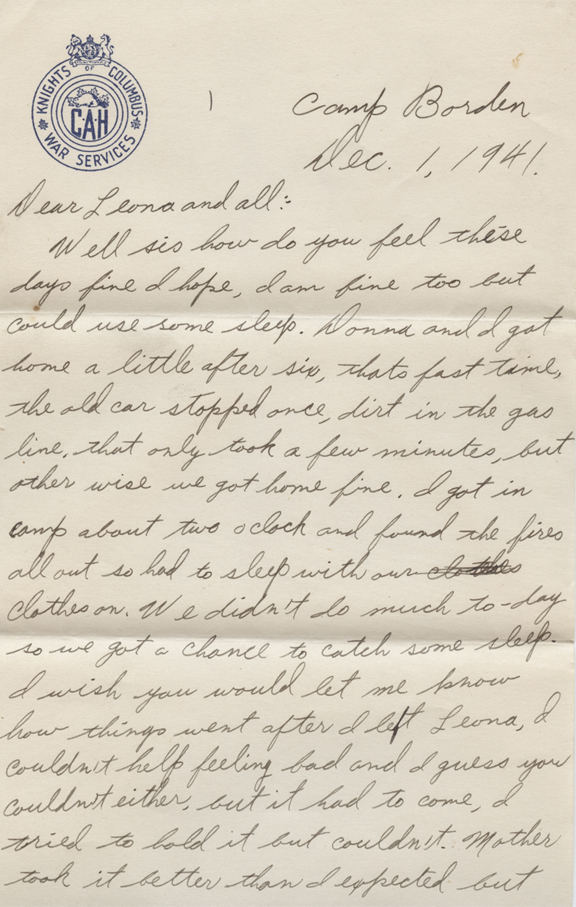 KNIGHTS OF COLUMBUS
CAH
WAR SERVICES
1
Camp Borden
Dec. 1, 1941.
Dear Leona and all:-
Well sis how do you feel these
days fine I hope, I am fine too but
could use some sleep. Donna and I got
home a little after six, thats fast time,
the old car stopped once, dirt in the gas
line, that only took a few minutes, but
other wise we got home fine. I got in
camp about two oclock and found the fires
all out so had to sleep with our clothes
clothes on. We didn't do much to-day
so we got a chance to catch some sleep.
I wish you would let me know
how things went after I left Leona, I
couldn't help feeling bad and I guess you
couldn't either, but it had to come, I
tried to hold it but couldn't. Mother
took it better than I expected but